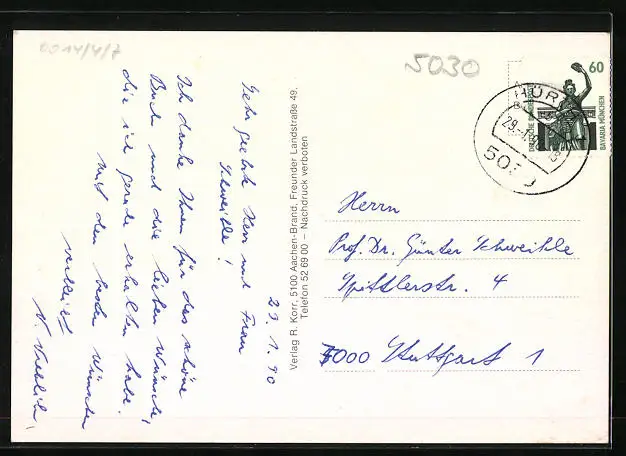 0014/4/7
5030
60
DEUTSCHE BUNDESPOST
BAVARIA MÜNCHEN
HÜR
29.-1.90
5030
Verlag R. Korr, 5100 Aachen-Brand, Freunder Landstraße 49,
Telefon 52 69 00 – Nachdruck verboten
29.1.90
Sehr geehrter Herr und Frau
Schweikle!
Ich danke Ihnen für das schöne
Buch und die lieben Wünsche,
die ich gerade erhalten habe.
Mit den besten Wünschen
verbleibt
Herrn
Prof. Dr. Günter Schweikle
Spittlerstr. 4
7000 Stuttgart 1